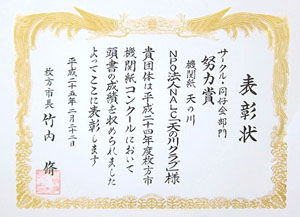 表彰状
サークル・同好会部門
努力賞
機関紙 天の川
NPO法人NALC「天の川クラブ」様
貴団体は平成二十四年度枚方市
機関紙コンクールにおいて
頭書の成績を収められました
よってここに表彰します
平成二十五年二月二十二日
枚方市長 竹内 脩